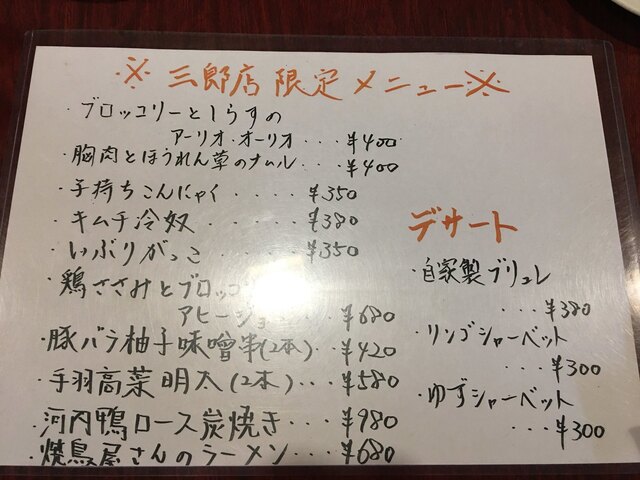 ※三郎店限定メニュー※
・ブロッコリーとしらすの
アーリオ・オーリオ・・・¥400
・胸肉とほうれん草のナムル・・・¥400
・子持ちこんにゃく・・・・¥350
・キムチ冷奴・・・・・・¥380
・いぶりがっこ・・・・・¥350
・鶏ささみとブロッコ
アヒージョ・・・¥680
・豚バラ柚子味噌串(2本)・・・¥420
・手羽高菜明太(2本)・・・¥580
・河内鴨ロース炭焼き・・・¥980
・焼鳥屋さんのラーメン・・・¥680
デザート
・自家製ブリュレ
・・・¥380
・リンゴシャーベット
・・・¥300
・ゆずシャーベット
・・・¥300